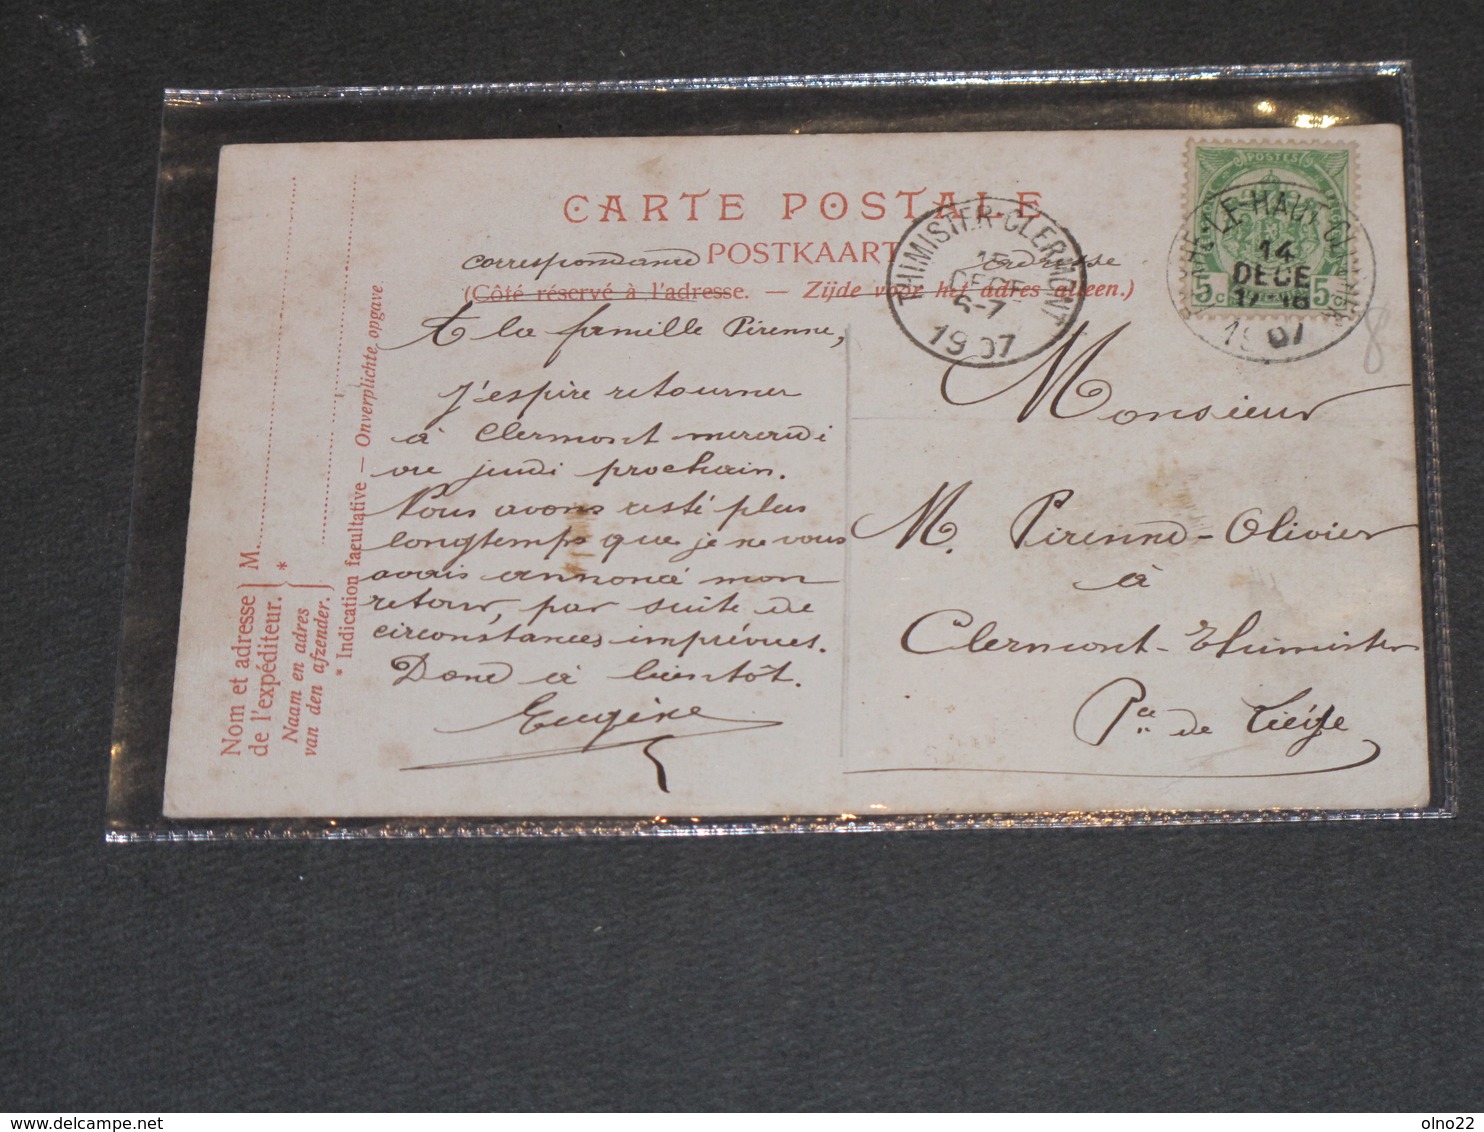 CARTE POSTALE
POSTKAART
correspondance
adresse
(Côté réservé à l'adresse. — Zijde voor het adres alleen.)
A la famille Pirenne,
J'espère retourner
à Clermont mercredi
ou jeudi prochain.
Nous avons resté plus
longtemps que je ne vous
avais annoncé mon
retour, par suite de
circonstances imprévues.
Donc à bientôt.
Eugène
Monsieur
M. Pirenne-Olivier
à
Clermont-Thimister
Pce de Liége
THIMISTER-CLERMONT
15
DECE
6-7
1907
POSTES
5c
5c
14
DECE
17-18
1907
8
Nom et adresse
de l'expéditeur.
M.
Naam en adres
van den afzender.
*
* Indication facultative — Onverplichte opgave
olno22